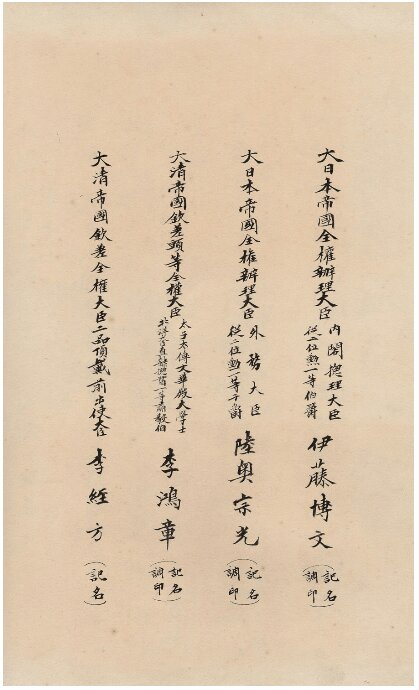 大日本帝國全權辦理大臣
内閣總理大臣
從二位勳一等伯爵
伊藤博文
(記名
調印)
大日本帝國全權辦理大臣
外務大臣
從二位勳一等子爵
陸奥宗光
(記名
調印)
大清帝國欽差頭等全權大臣
太子太傅文華殿大學士
北洋大臣直隸總督一等肅毅伯
李鴻章
(記名
調印)
大清帝國欽差全權大臣二品頂戴前出使大臣
李經方
(記名)